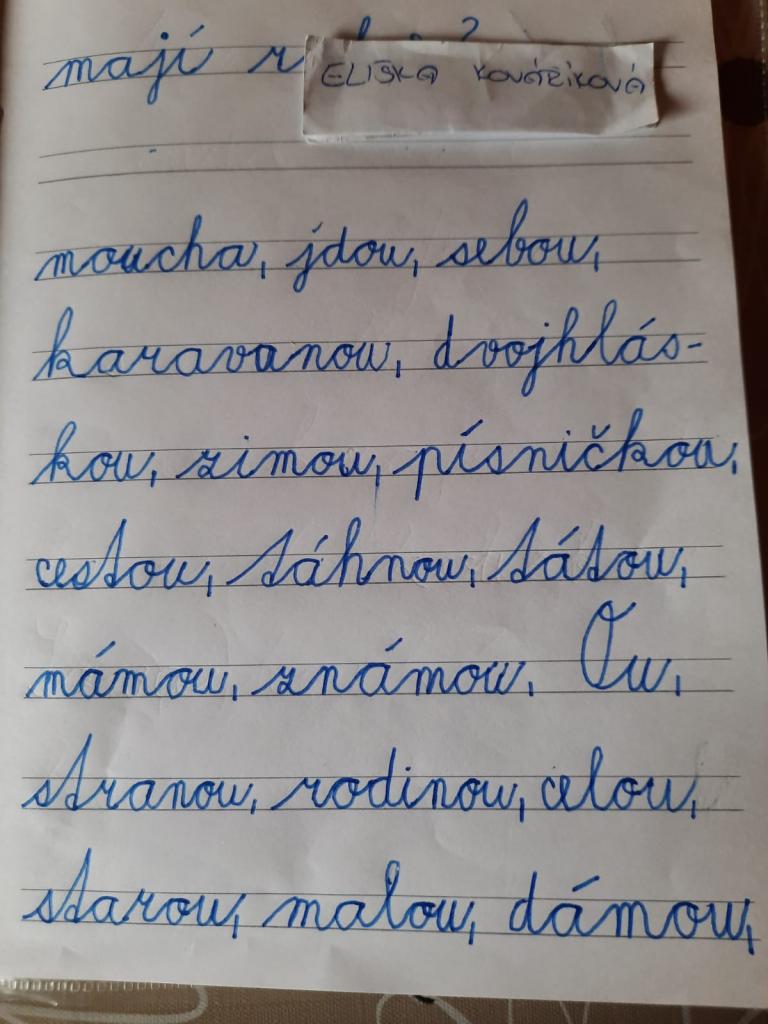 mají
ELIŠKA KOVÁŘÍKOVÁ
moucha, jdou, sebou,
karavanou, dvojhlás-
kou, zimou, písničkou,
cestou, táhnou, tátou,
mámou, známou. Ou,
stranou, rodinou, celou,
starou, malou, dámou,